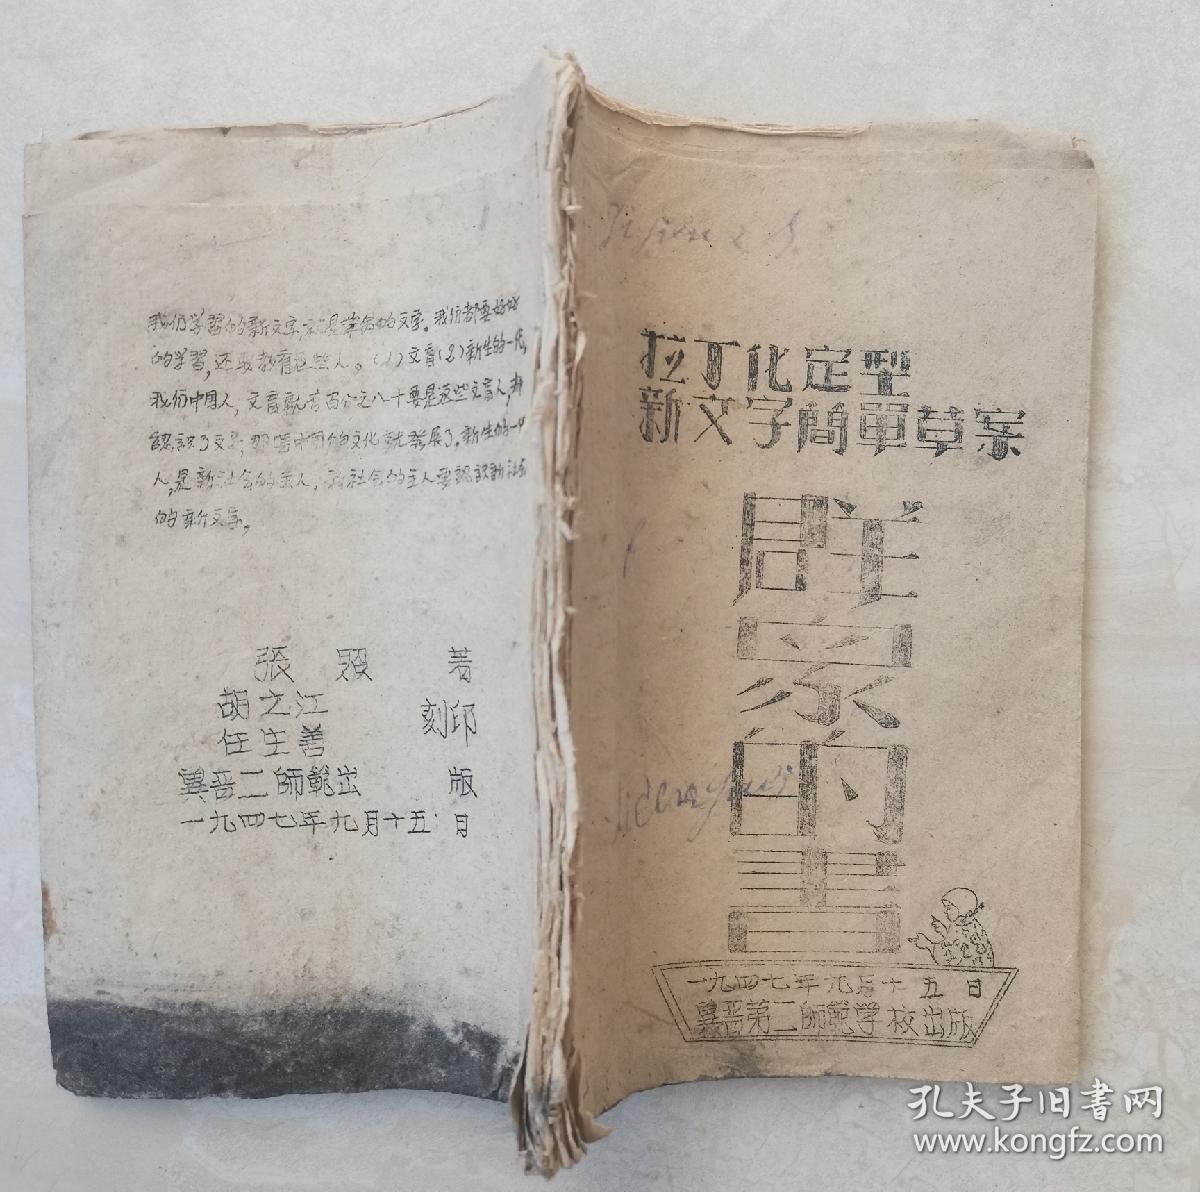 拉丁化定型
新文字簡單草案
群眾的書
一九四七年九月十五日
冀晋第二師範学校出版
我们学習的新文字,就是革命的文字。我们都要好好
的学習,还要教育这些人。(1)文盲(2)新生的一代,
我们中国人,文盲就有百分之八十要是这些文盲人,都
認識了文字,那嗎中国的文化就發展了。新生的一代
人,是新社会的主人,新社会的主人要認識新社会
的新文字。
張 著
胡之江
任生善 刻印
冀晋二師範出版
一九四七年九月十五日
孔夫子旧書网
www.kongfz.com